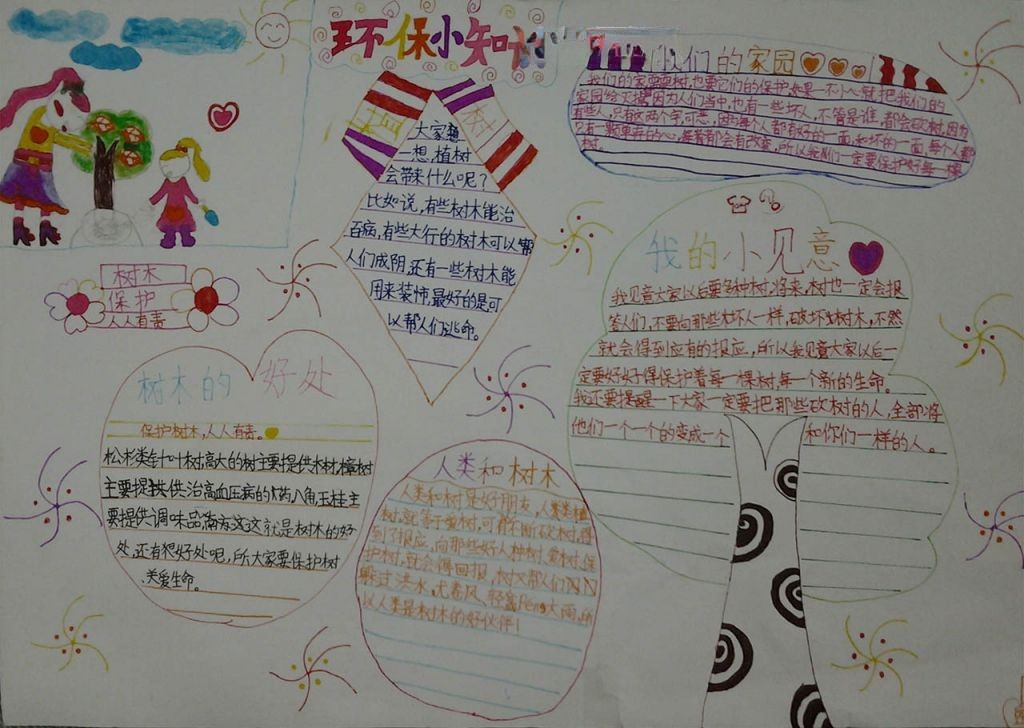 环保小知识
大家想
一想,植树
会带来什么呢?
比如说,有些树木能治
百病,有些大行的树木可以帮
人们成阴,还有一些树木能
用来装饰,最好的是可
以帮人们逃命。
我们的家园
我们的家要树,也要它们的保护如果一不小心就把我们的
家园给灭掉因为人们当中,也有一些坏人,不管是谁,都会砍树,因为
有些人,只有这两个字,可恶,因为每个人都有好的一面,和坏的一面,每个人都
只有一颗单弄的心,
都会有改变,所以我们一定要保护好每一棵
树。
树木
保护
人人有责
树木的好处
保护树木,人人有责。
松杉类针叶树高大的树主要提供木材,樟树
主要提供治高血压病的药八角玉桂主
要提供调味品,
这这就是树木的好
处,还有很好处呢,所大家要保护树
关爱生命。
人类和树木
人类和树是好朋友,人类
树,就等于
树,可有不断砍树,得
到了报应,向那些好人种树,爱树,保
护树,就会得回报,树又帮人们
躲过洪水,
大雨,所
以人类是树木的好伙伴!
我的小见意
我见意大家以后要多种树,将来,树也一定会报
答人们,不要向那些坏人一样,破坏树木,不然
就会得到应有的报应,所以我见意大家以后一
定要好好得保护着每一棵树,每一个新的生命。
我还要提醒一下大家一定要把那些砍树的人,全部将
他们一个一个的变成一个 和你们一样的人。